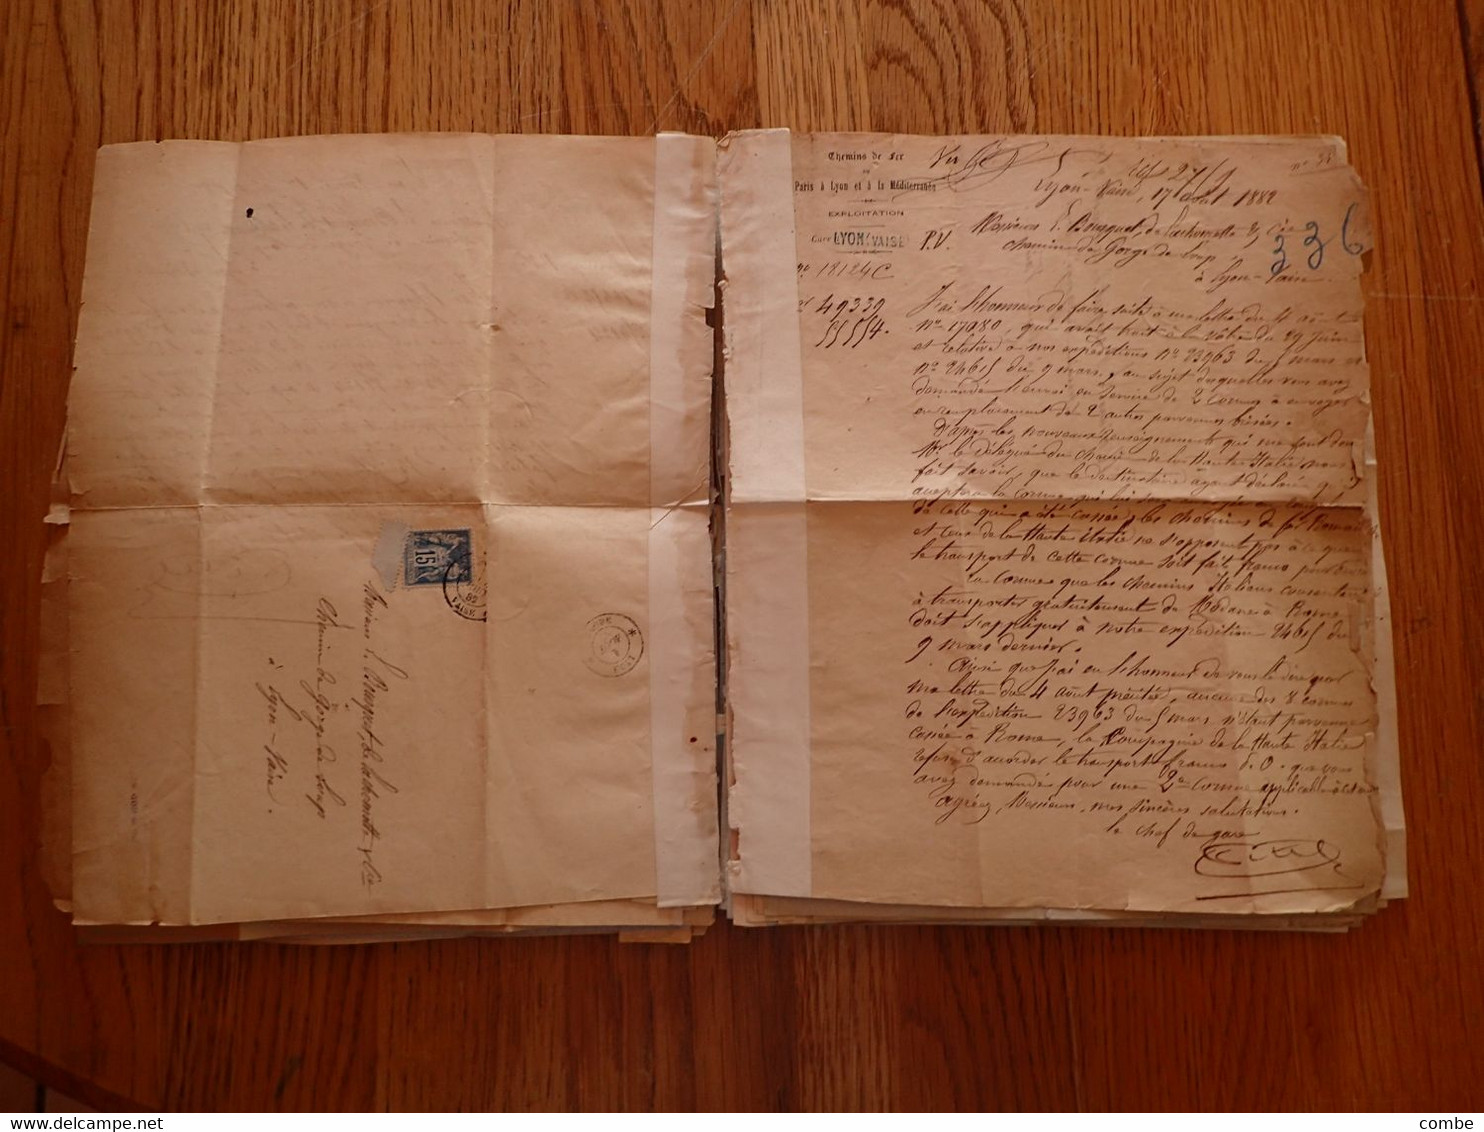 Chemins de Fer
DE
Paris à Lyon et à la Méditerranée
EXPLOITATION
Gare LYON (VAISE)
P.V.
n° 18124 C
49339
55554.
Rep 27/9
Lyon-Vaise, 17 août 1882
336
Messieurs E. Bousquet, de Lachomette & Cie
Chemin de Gorge de Loup
à Lyon-Vaise.
J'ai l'honneur de faire suite à ma lettre du 4 août
n° 17080, qui avait trait à la vôtre du 29 Juin
et relative à nos expéditions n° 23963 du 5 mars et
n° 24615 du 9 mars, au sujet desquelles vous avez
demandé l'envoi en service de 2 Cornues à envoyer
en remplacement de 2 autres parvenues brisées.
D'après les nouveaux renseignements que me font
Mr. le délégué du chemin de la Haute Italie nous
fait savoir, que le destinataire ayant déclaré qu'il
acceptera la cornue qui lui sera
de celle qui a été cassée, les chemins de fer Romains
et ceux de la Haute Italie ne s'opposent pas à ce que
le transport de cette cornue soit fait franco
La Cornue que les chemins Italiens consentent
à transporter gratuitement de Modane à Rome
doit s'appliquer à notre expédition 24615 du
9 mars dernier.
Ainsi que j'ai eu l'honneur de vous le dire par
ma lettre du 4 août précitée, aucune des 8 cornues
de l'expédition 23963 du 5 mars n'étant parvenue
cassée à Rome, la Compagnie de la Haute Italie
refuse d'accorder le transport franco de O. que vous
avez demandé pour une 2e Cornue applicable à cet envoi
Agréez, Messieurs, mes sincères salutations.
le chef de gare
15
VAISE
Messieurs E. Bousquet, de Lachomette & Cie
Chemin de Gorge de Loup
à Lyon-Vaise.
delcampe.net
combe